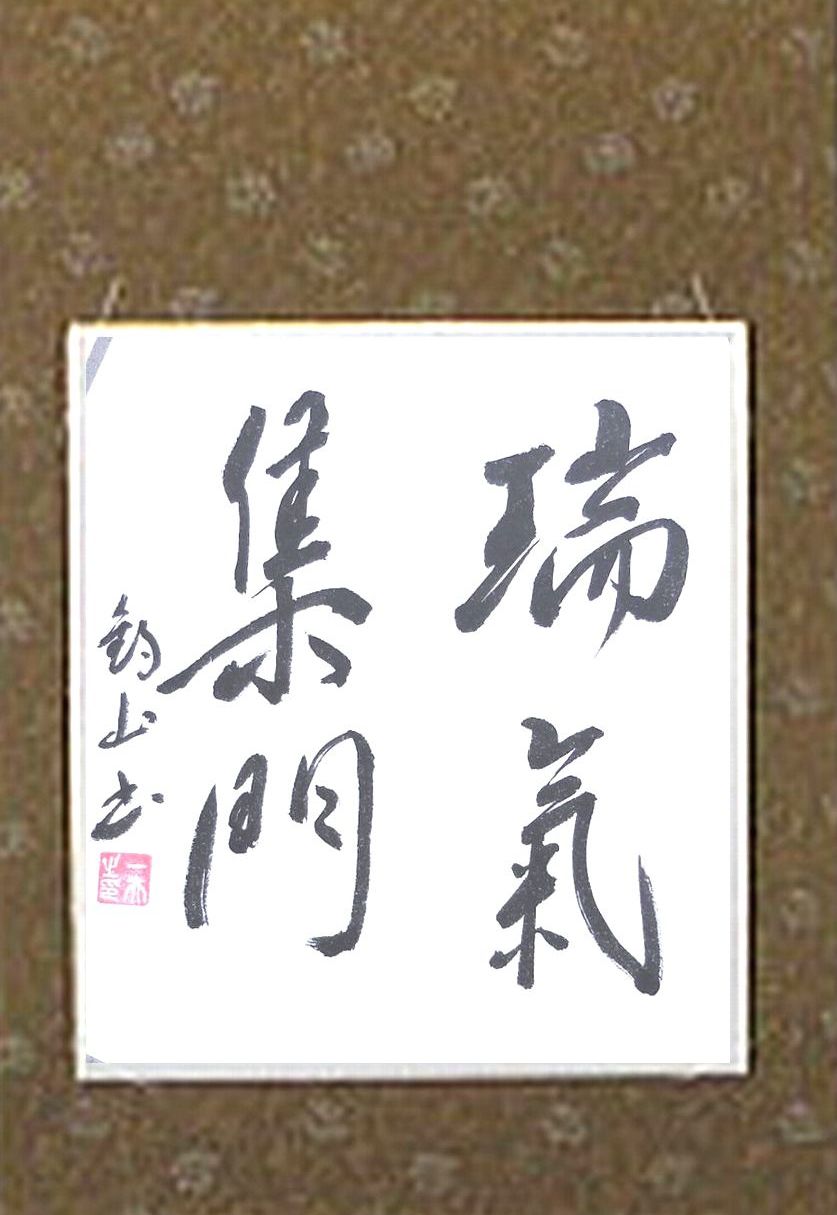 瑞氣
集門
釣山書